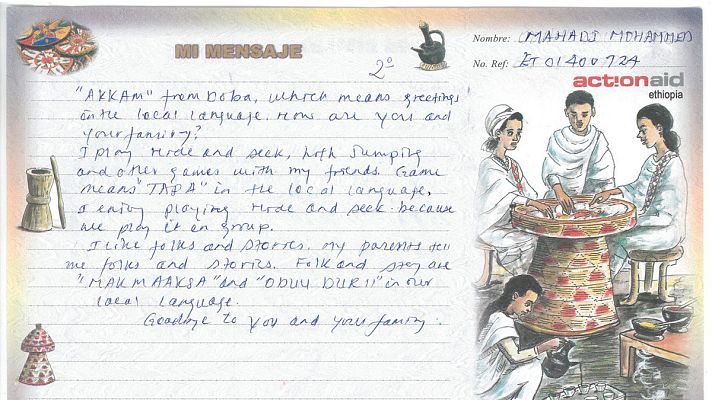 MI MENSAJE
2º
Nombre: MAHADI MOHAMMED
No. Ref: ET 01400724
act!onaid
ethiopia
"AKKAM" from Doba, which means greetings
in the local language. How are you and
your family?
I play Hide and seek, high Jumping
and other games with my friends. Game
means "TAPA" in the local language.
I enjoy playing Hide and seek because
we play it in group.
I like folks and stories. my parents tell
me folks and stories. Folk and story are
"MAKMAAKSA" and "ODUU DURII" in our
local language.
Goodbye to you and your family.